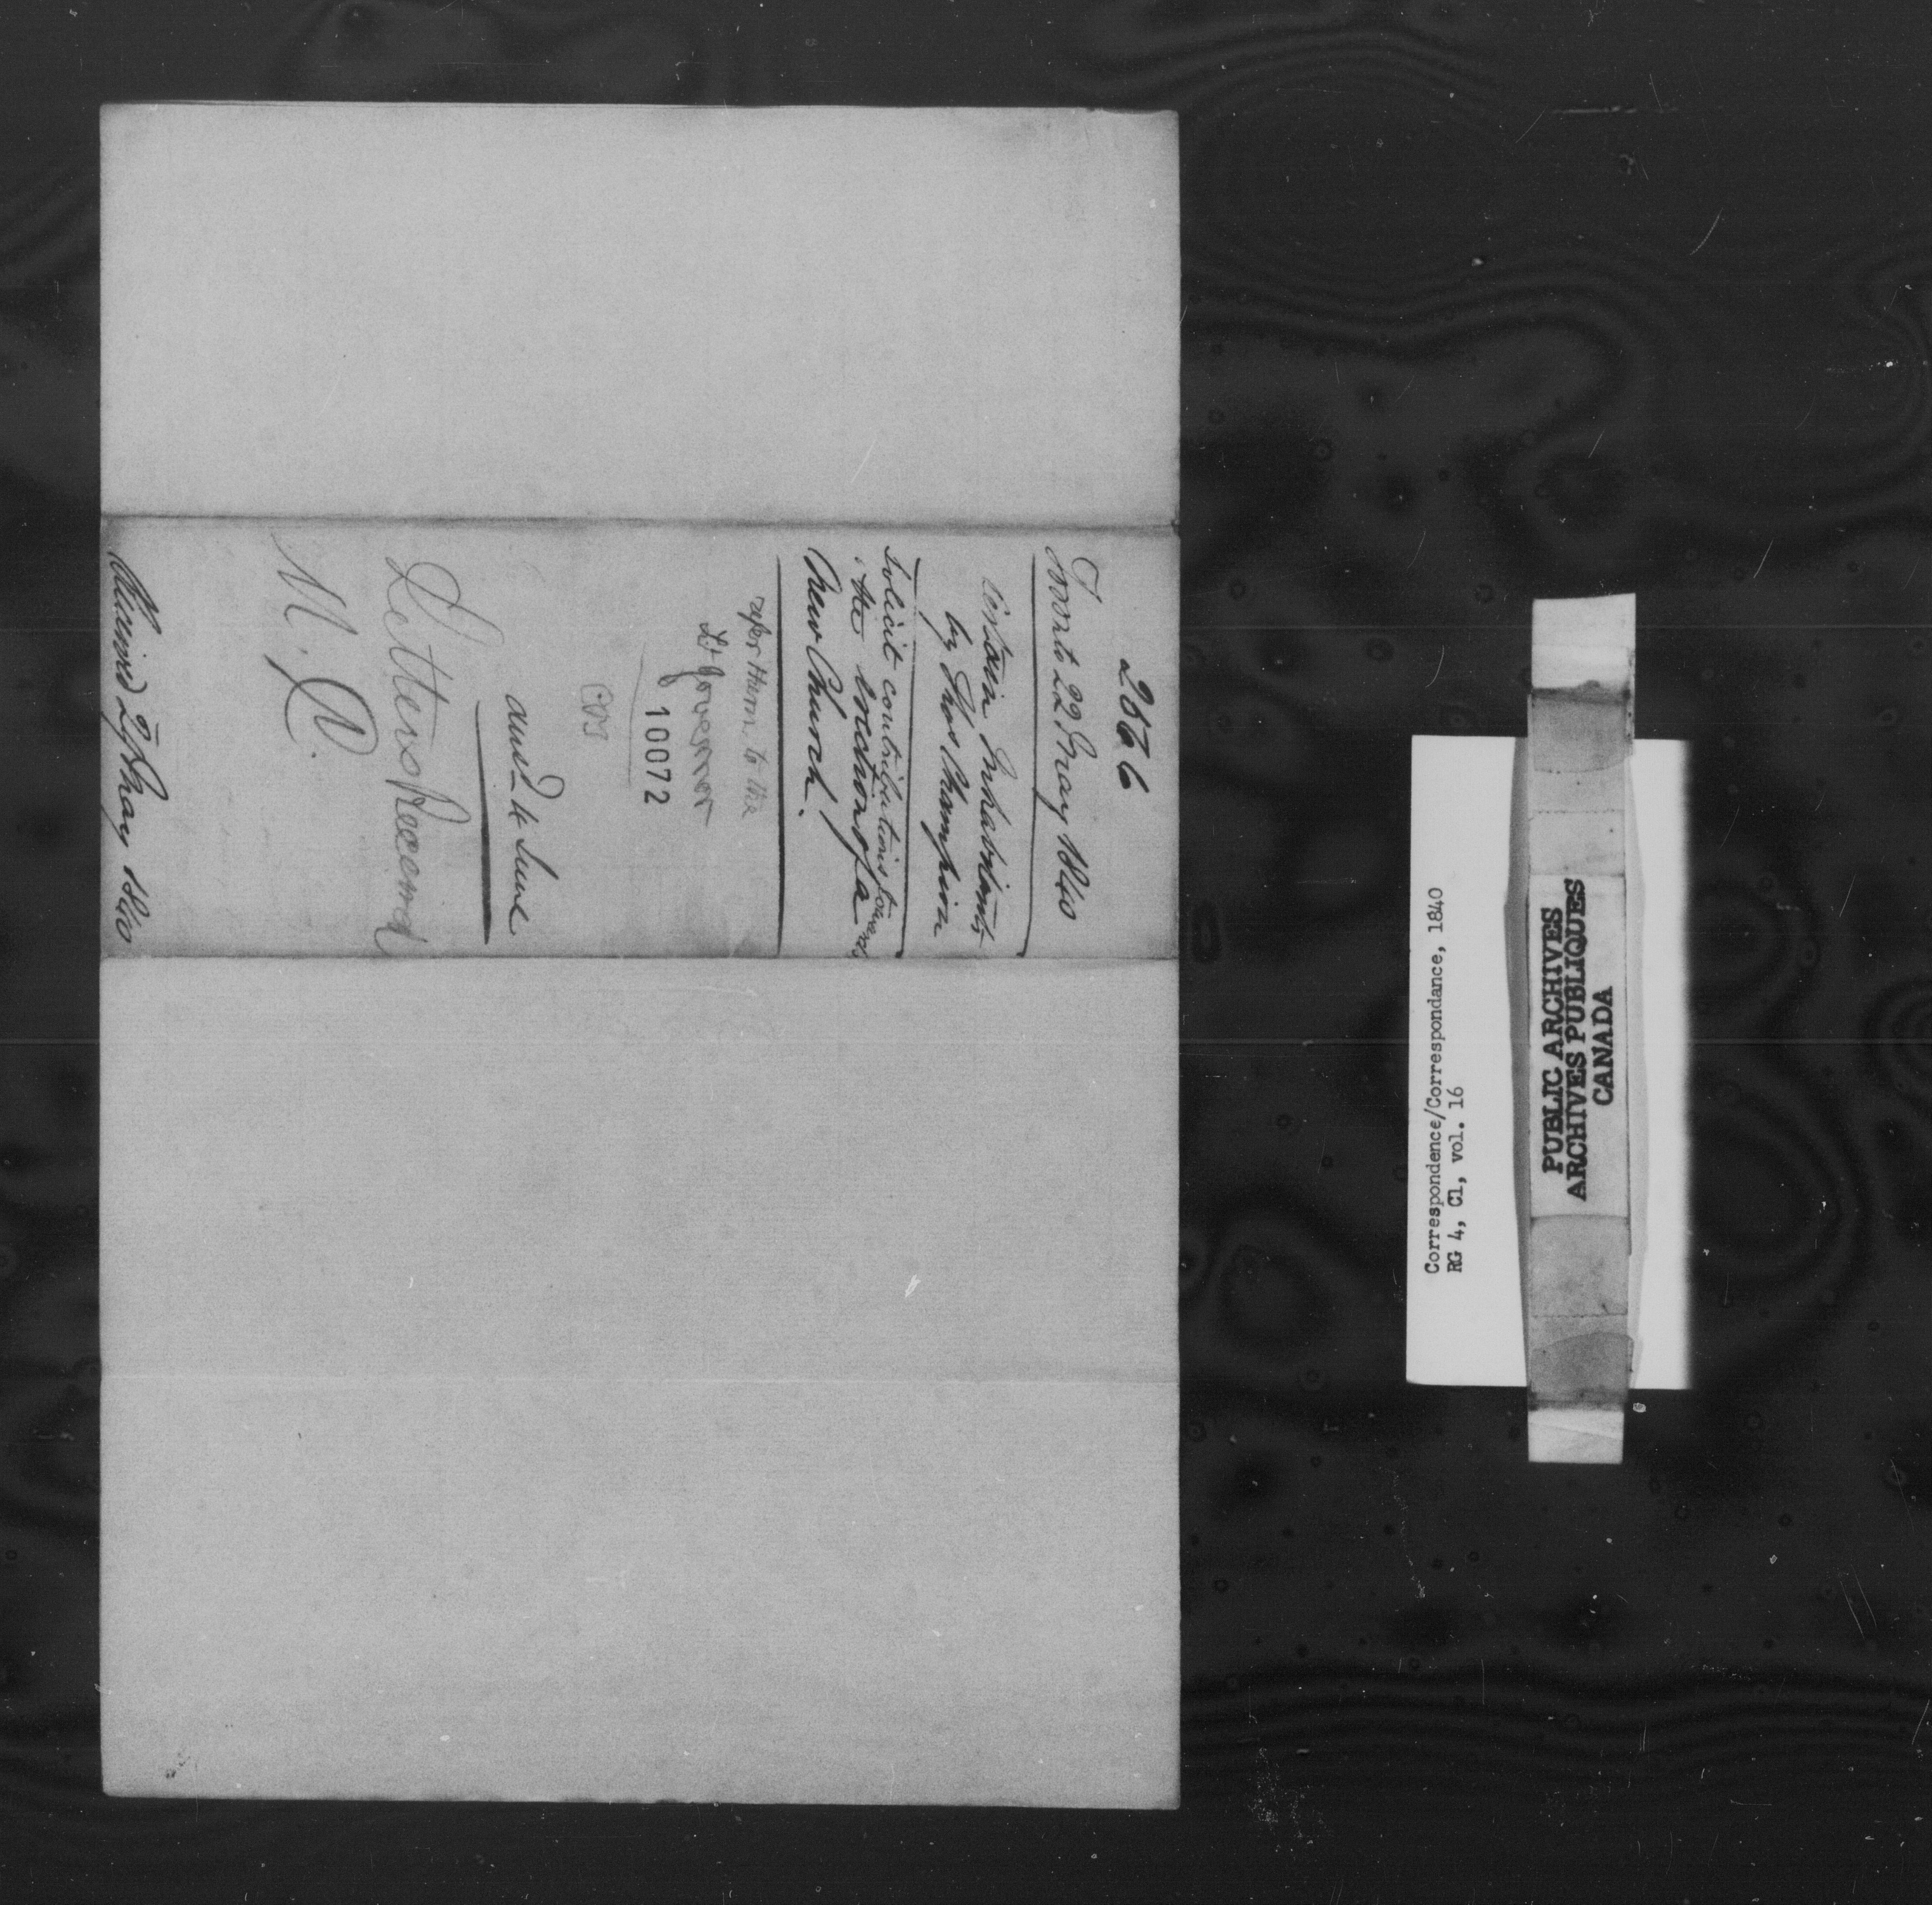 2566
Toronto 22 May 1840
Certain Inhabitants
by Thos Champion
Solicit contributions towards
the erection of a
New Church.
refer them to the
Lt Governor
10072
ansd 4 June
Letters Received
M.
Received 27 May 1840
Correspondence/Correspondance, 1840
RG 4, C1, vol. 16
PUBLIC ARCHIVES
ARCHIVES PUBLIQUES
CANADA